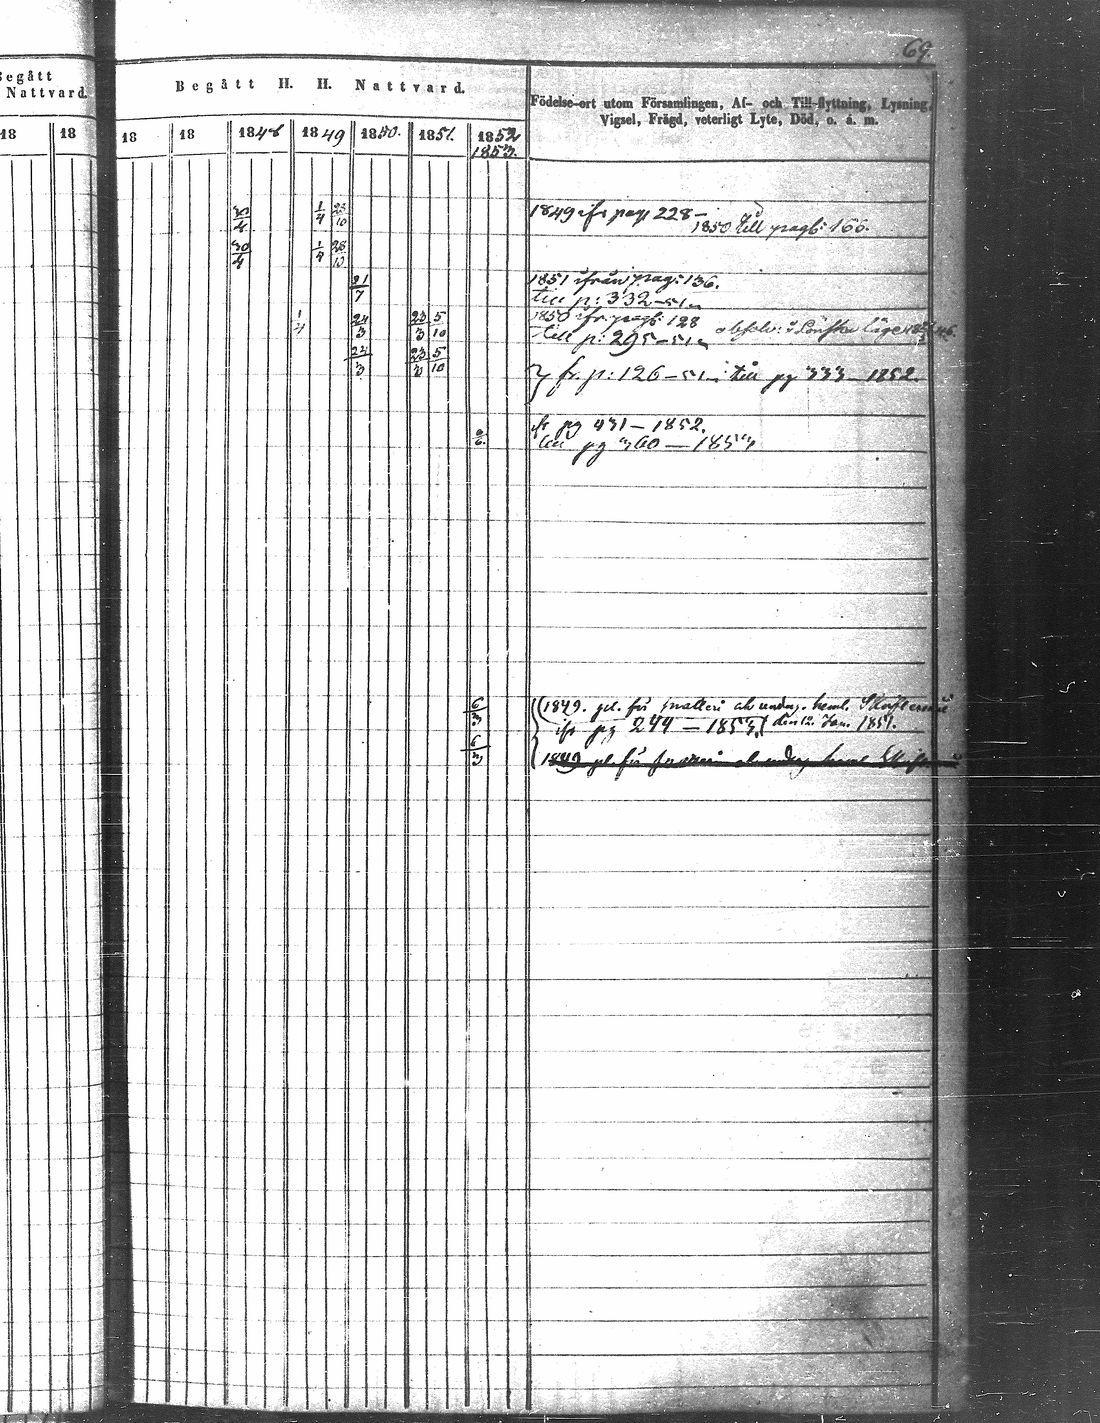 69.
Begått
Nattvard.
Begått H. H. Nattvard.
Födelse-ort utom Församlingen, Af- och Till-flyttning, Lysning,
Vigsel, Frägd, veterligt Lyte, Död, o. s. m.
18 18 18 18 1848 1849 1850. 1851. 1852
1853.
30/4 1/4 28/10 1849 ifr pag 228 –
1850 till pag: 166.
30/4 1/4 28/10
21/7 1851 ifrån pag: 136.
till p: 332 – 51.
1/4 24/3 23/3 5/10 1850 ifr pag: 128
till p: 295 – 51.
24/3 23/3 5/10
fr. p: 126 – 51. till pg 333 – 1852.
ifr pg 431 – 1852.
till pg 360 – 1853
6/3 (1849. för
ifr pg 244 – 1853. den 12. Jan. 1851.
6/3 1849 för